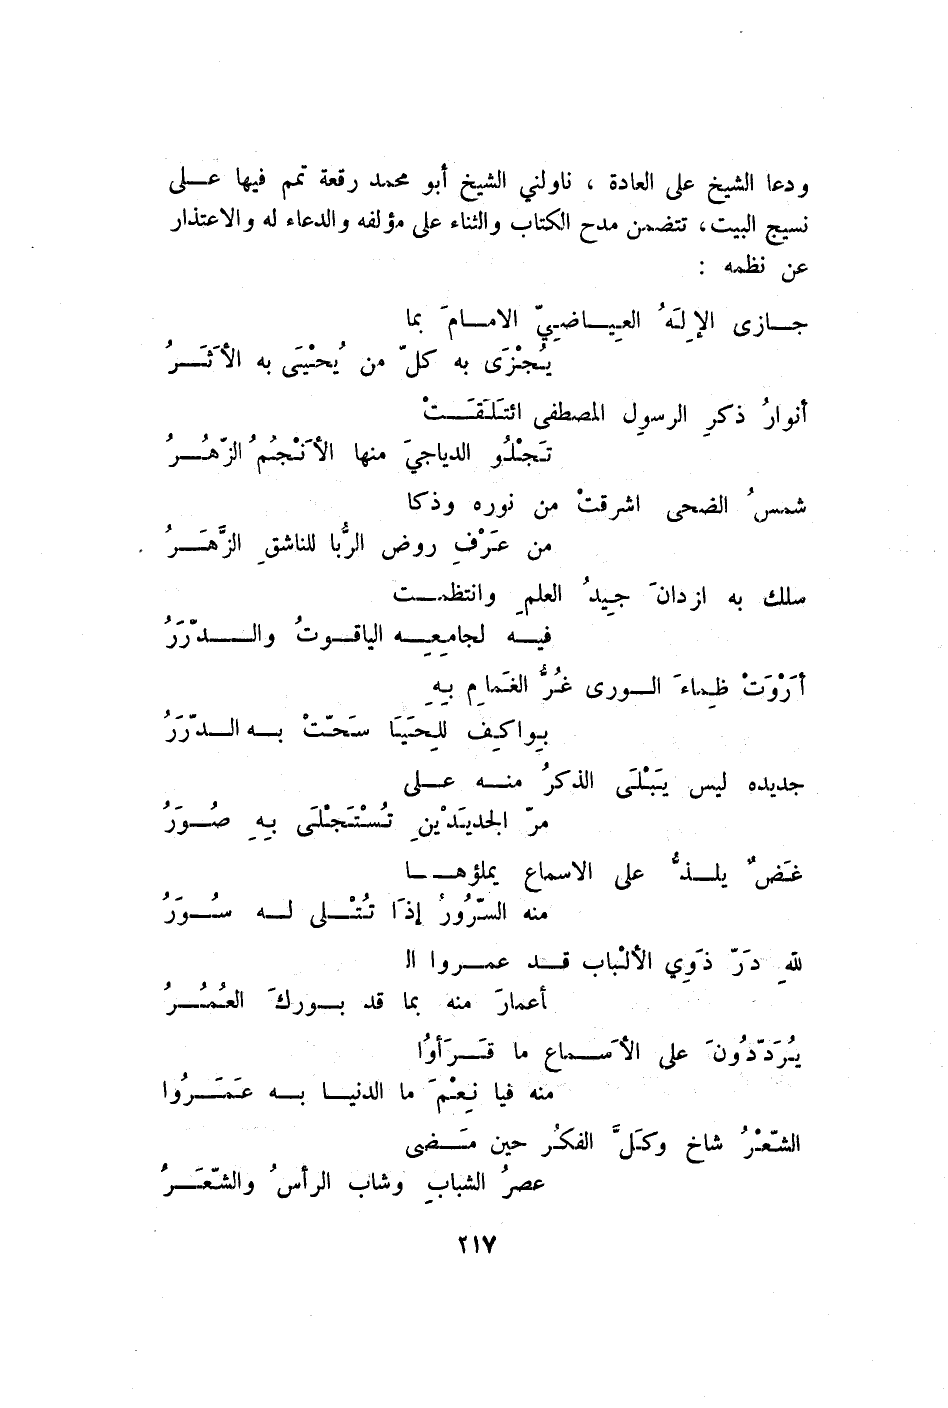 ودعا الشيخ على العادة ، ناولني الشيخ أبو محمد رقعة تمم فيها عـلى
نسيج البيت، تتضمن مدح الكتاب والثناء على مؤلفه والدعاء له والاعتذار
عن نظمه :
جـازى الإِلَهُ العِيـاضِيّ الامـامَ بما
يُجْزَى به كلّ من يُحْيَى به الأَثَـرُ
أنوارُ ذكرِ الرسولِ المصطفى ائتَلَقَـتْ
تَجْلُو الدياجيَ منها الأَنْجُمُ الزّهُـرُ
شمسُ الضحى اشرقتْ من نوره وذكا
من عَرْفِ روض الرُّبا للناشقِ الزَّهَـرُ
سلك به ازدانَ جِيدُ العلمِ وانتظمـت
فيـه لجامِعِـه الياقوتُ والـدّرَرُ
أرْوَتْ ظِماءَ الـورى غُرُّ الغَمامِ بِهِ
بِواكِف لِلحَيَا سَحّتْ بـه الـدّرَرُ
جديده ليس يَبْلَى الذكرُ منـه عـلى
مرّ الجديَدْينِ تُسْتَجْلَى بِهِ صُـوَرُ
غَضٌ يلـذُّ على الاسماع يملؤهـا
منه السّرُورُ إذَا تُتْـلى لـه سُـوَرُ
للهِ دَرّ ذَوِي الألْبابِ قـد عمـروا ال
أعمارَ منه بما قد بـوركَ العُمُـرُ
يُرَدّدُونَ على الأَسْـماع ما قَـرَأوُا
منه فيا نِعْمَ ما الدنيـا بـه عَمَـرُوا
الشّعْرُ شاخ وكَلَّ الفكُر حين مَـضى
عصرُ الشبابِ وشاب الرأسُ والشّعَـرُ
٢١٧